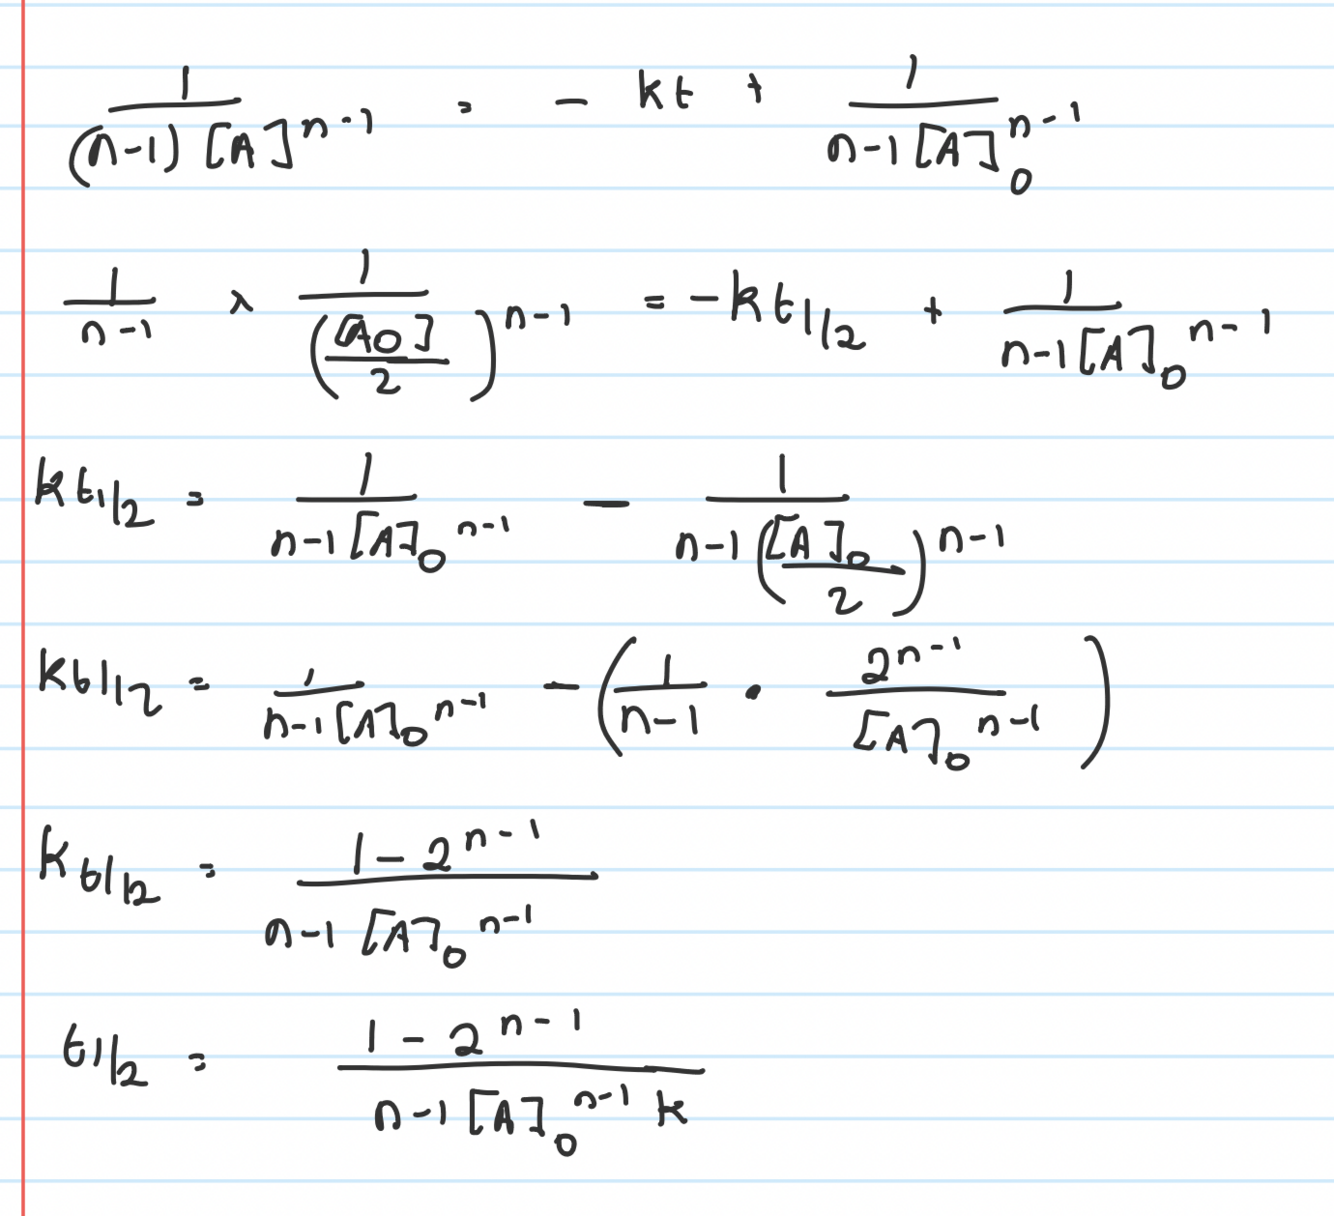 1/((n-1)[A]^{n-1}) = - kt + 1/(n-1[A]_0^{n-1})
1/(n-1) × 1/([A0]/2)^{n-1} = -kt_{1/2} + 1/(n-1[A]_0^{n-1})
kt_{1/2} = 1/(n-1[A]_0^{n-1}) - 1/(n-1([A]_0/2)^{n-1})
kt_{1/2} = 1/(n-1[A]_0^{n-1}) - (1/(n-1) · 2^{n-1}/[A]_0^{n-1})
kt_{1/2} = (1-2^{n-1})/(n-1[A]_0^{n-1})
t_{1/2} = (1-2^{n-1})/(n-1[A]_0^{n-1} k)